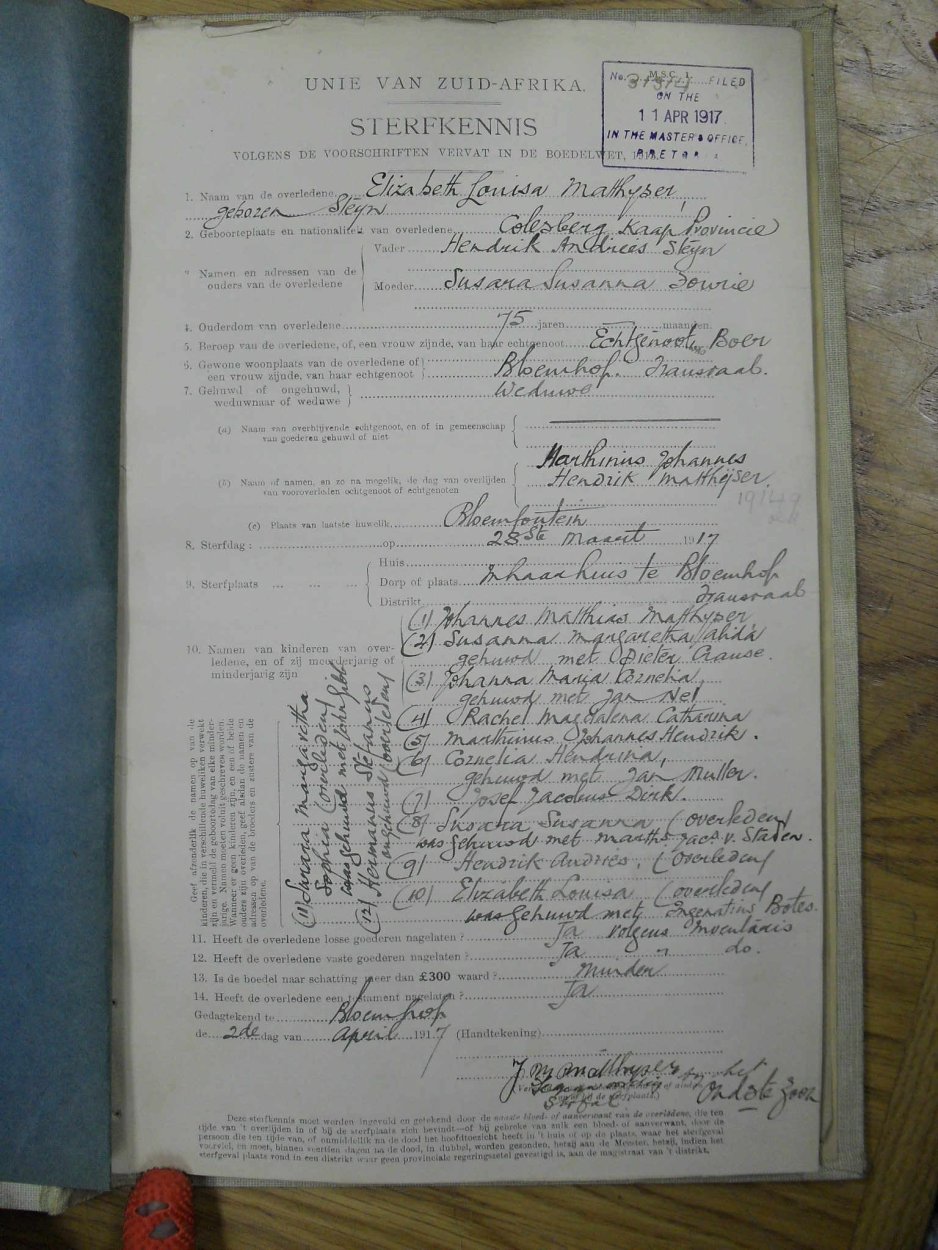 UNIE VAN ZUID-AFRIKA.
No. M.S.C. 1. FILED
ON THE
11 APR 1917
IN THE MASTER'S OFFICE,
PRETORIA
STERFKENNIS
VOLGENS DE VOORSCHRIFTEN VERVAT IN DE BOEDELWET,
1. Naam van de overledene Elizabeth Louisa Matthyser,
geboren Steyn
2. Geboorteplaats en nationaliteit van overledene Colesberg Kaap Provincie
Vader Hendrik Andries Steyn
Namen en adressen van de
ouders van de overledene
Moeder Susara Susanna Fourie
4. Ouderdom van overledene 75 jaren maanden.
5. Beroep van de overledene, of, een vrouw zijnde, van haar echtgenoot Echtgenoot Boer
6. Gewone woonplaats van de overledene of
een vrouw zijnde, van haar echtgenoot Bloemhof. Transvaal.
7. Gehuwd of ongehuwd,
weduwnaar of weduwe Weduwe
(a) Naam van overblijvende echtgenoot, en of in gemeenschap
van goederen gehuwd of niet
Marthinus Johannes
(b) Naam of namen, en zo na mogelik, de dag van overlijden
van vooroverleden echtgenoot of echtgenoten
Hendrik Matthijser.
(c) Plaats van laatste huwelik Bloemfontein
8. Sterfdag: op 28ste Maart 1917
Huis
9. Sterfplaats Dorp of plaats In haar huis te Bloemhof
Distrikt Transvaal
10. Namen van kinderen van over-
ledene, en of zij meerderjarig of
minderjarig zijn
(1) Johannes Matthias Matthyser
(2) Susanna Margaretha Alida
gehuwd met Pieter Crause.
(3) Johanna Maria Cornelia,
gehuwd met Jan Nel
(4) Rachel Magdalena Catharina
(5) Marthinus Johannes Hendrik.
(6) Cornelia Hendrina,
gehuwd met Jan Muller.
(7) Josef Jacobus Dirk.
(8) Susara Susanna (overleden)
was gehuwd met Marths. Jac. v. Staden.
(9) Hendrik Andries. (overleden)
(10) Elizabeth Louisa (overleden)
was gehuwd met Ingenatius Botes.
(11) Margaretha
Sophia (overleden)
was gehuwd met John Gibb
(12) Hermanus Stefanus
ongehuwd (overleden)
Geef afzonderlik de namen op van de
kinderen, die in verschillende huweliken verwekt
zijn en vermeld de geboortedag van elke minder-
jarige. Namen moeten voluit geschreven worden.
Wanneer er geen kinderen zijn, en een of beide
ouders zijn overleden, geef alsdan de namen en
adressen op van de broeders en zusters van de
overledene.
11. Heeft de overledene losse goederen nagelaten? Ja volgens Inventaris
12. Heeft de overledene vaste goederen nagelaten? Ja " do.
13. Is de boedel naar schatting meer dan £300 waard? Minder
14. Heeft de overledene een testament nagelaten? Ja
Gedagtekend te Bloemhof
de 2de dag van April 1917 (Handtekening)
J M Matthyser
Oudste Zoon
Deze sterfkennis moet worden ingevuld en getekend door de naaste bloed- of aanverwant van de overledene, die ten
tijde van 't overlijden in of bij de sterfplaats zich bevindt—of bij gebreke van zulk een bloed- of aanverwant, door de
persoon die ten tijde van, of onmiddellik na de dood het hoofdtoezicht heeft in 't huis of op de plaats, waar het sterfgeval
voorviel, en moet, binnen veertien dagen na de dood, in dubbel, worden gezonden, hetzij aan de Meester, hetzij, indien het
sterfgeval plaats vond in een distrikt waar geen provinciale regeringszetel gevestigd is, aan de magistraat van 't distrikt.